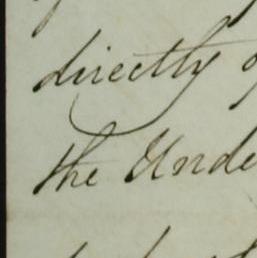 directly
the Unde